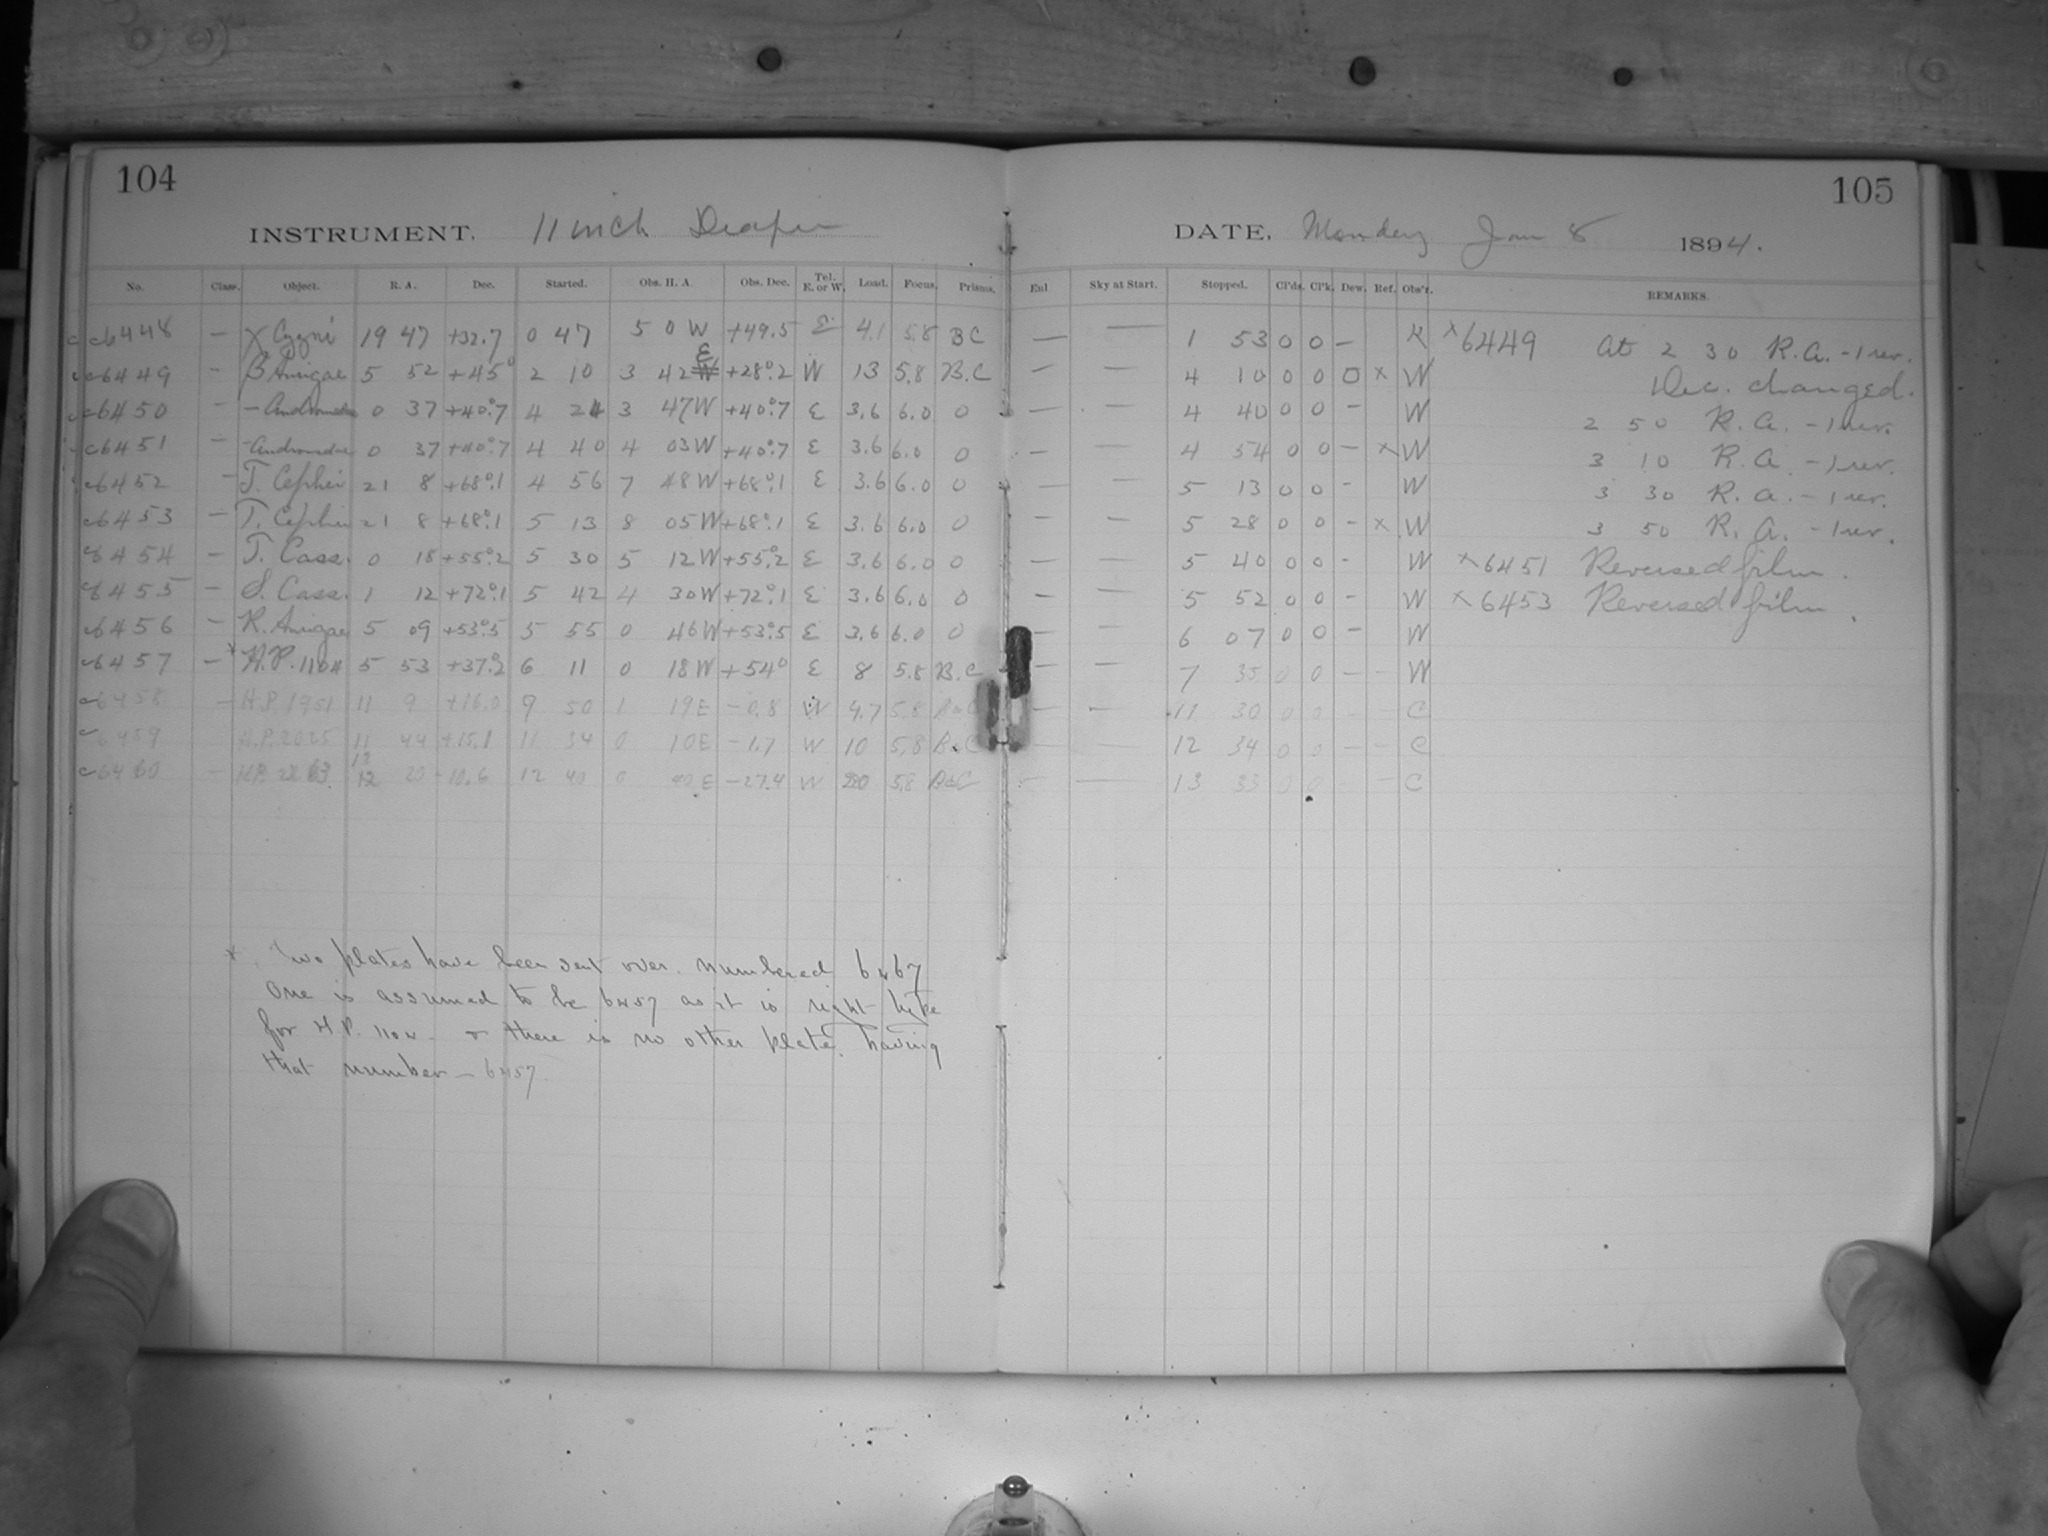 104
INSTRUMENT. 11 inch Draper
No. Class. Object. R. A. Dec. Started. Obs. H. A. Obs. Dec. Tel. E. or W. Load. Focus. Prisms.
c6448 — χ Cygni 19 47 +32.7 0 47 5 0 W +49.5 E 4.1 5.8 BC
c6449 — β Aurigae 5 52 +45° 2 10 3 42 E +28°.2 W 13 5.8 B.C
c6450 — – Andromedae 0 37 +40°.7 4 24 3 47 W +40°.7 E 3.6 6.0 0
c6451 — – Andromedae 0 37 +40°.7 4 40 4 03 W +40°.7 E 3.6 6.0 0
c6452 — T. Cephei 21 8 +68°.1 4 56 7 48 W +68°.1 E 3.6 6.0 0
c6453 — T. Cephei 21 8 +68°.1 5 13 8 05 W +68°.1 E 3.6 6.0 0
c6454 — T. Cass. 0 18 +55°.2 5 30 5 12 W +55°.2 E 3.6 6.0 0
c6455 — S. Cass. 1 12 +72°.1 5 42 4 30 W +72°.1 E 3.6 6.0 0
c6456 — R. Aurigae 5 09 +53°.5 5 55 0 46 W +53°.5 E 3.6 6.0 0
c6457 — * H.P. 1104 5 53 +37°.2 6 11 0 18 W +54° E 8 5.8 B.C
c6458 — H.P. 1951 11 9 +16.0 9 50 1 19 E –0.8 W 4.7 5.8 B&C
c6459 H.P. 2025 11 44 +15.1 11 34 0 10 E –1.7 W 10 5.8 B&C
c6460 — H.P. 12 20 –10.6 12 40 0 E –27.4 W 20 5.8 B&C
* Two plates have been sent over. numbered 6467
One is assumed to be 6457 as it is right type
for H.P. 1104 – & there is no other plate, having
that number – 6457.
105
DATE. Monday Jan 8 1894.
Sky at Start. Stopped. Cl'ds. Cl'k. Dew. Ref. Obs'r. REMARKS.
— — 1 53 0 0 – K × 6449 At 2 30 R.A. – 1 rev.
— — 4 10 0 0 0 × W Dec. changed.
— — 4 40 0 0 – W 2 50 R.A. – 1 rev.
— — 4 54 0 0 – × W 3 10 R.A. – 1 rev.
— — 5 13 0 0 – W 3 30 R.A. – 1 rev.
— — 5 28 0 0 – × W 3 50 R.A. – 1 rev.
— — 5 40 0 0 – W × 6451 Reversed film.
— — 5 52 0 0 – W × 6453 Reversed film.
— — 6 07 0 0 – W
— — 7 35 0 0 – – W
— — 11 30 0 0 – – C
— — 12 34 0 0 – – C
— — 13 33 0 0 – – C